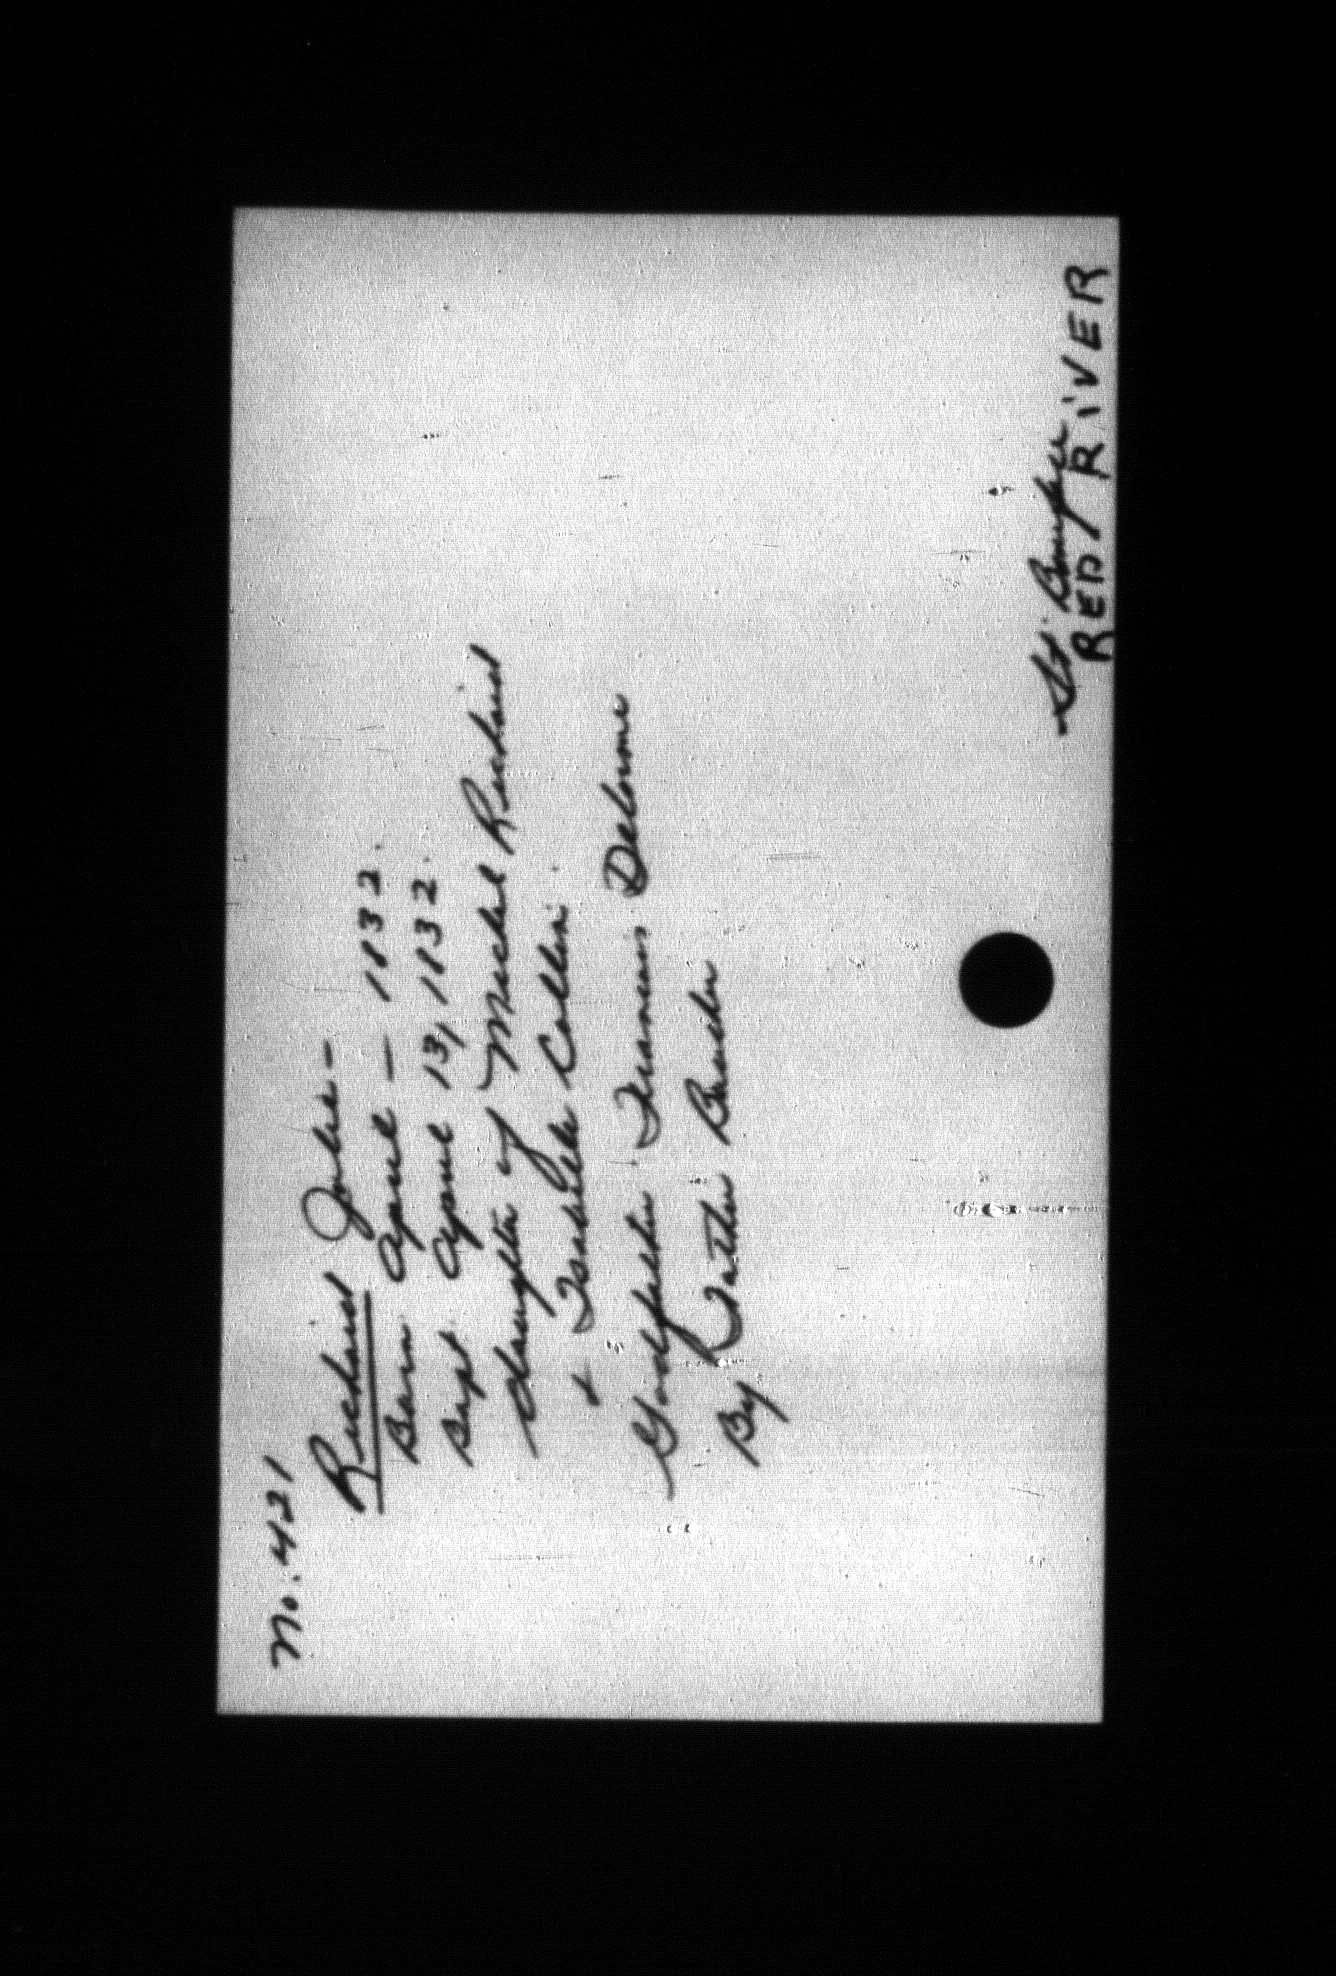 No. 421
Richard Julie -
Born April - 1832.
Bapt. April 13, 1832.
daughter of Michel Richard
& Isabelle Collin.
Godfather. Francois Delorme
By Father Boucher
St. Boniface
RED RIVER